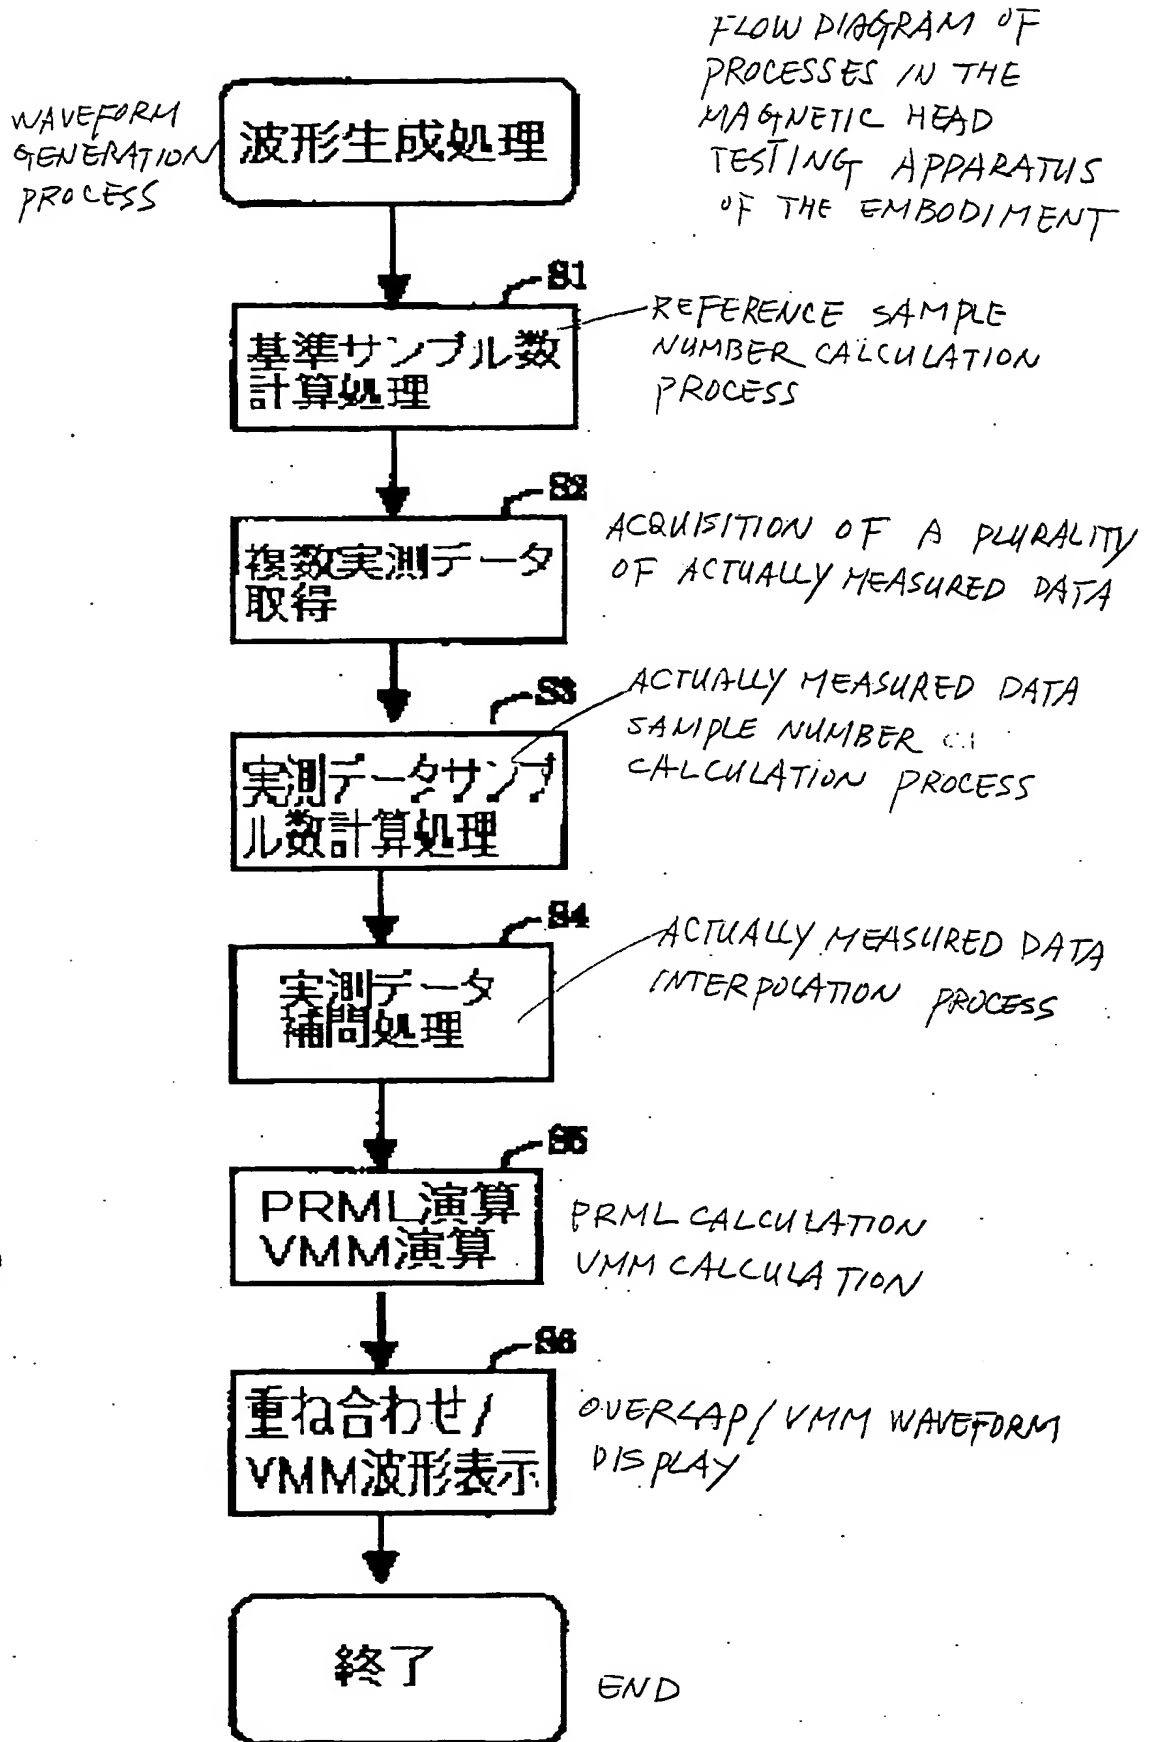 FLOW DIAGRAM OF
PROCESSES IN THE
MAGNETIC HEAD
TESTING APPARATUS
OF THE EMBODIMENT
WAVEFORM
GENERATION
PROCESS
波形生成処理
S1
基準サンプル数
計算処理
REFERENCE SAMPLE
NUMBER CALCULATION
PROCESS
S2
複数実測データ
取得
ACQUISITION OF A PLURALITY
OF ACTUALLY MEASURED DATA
S3
実測データサンプ
ル数計算処理
ACTUALLY MEASURED DATA
SAMPLE NUMBER
CALCULATION PROCESS
S4
実測データ
補間処理
ACTUALLY MEASURED DATA
INTERPOLATION PROCESS
S5
PRML演算
VMM演算
PRML CALCULATION
VMM CALCULATION
S6
重ね合わせ/
VMM波形表示
OVERLAP/VMM WAVEFORM
DISPLAY
終了
END